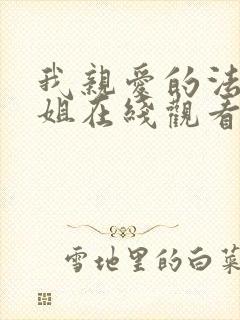 我親愛的法
姐在綫觀看
雪地里的白菜